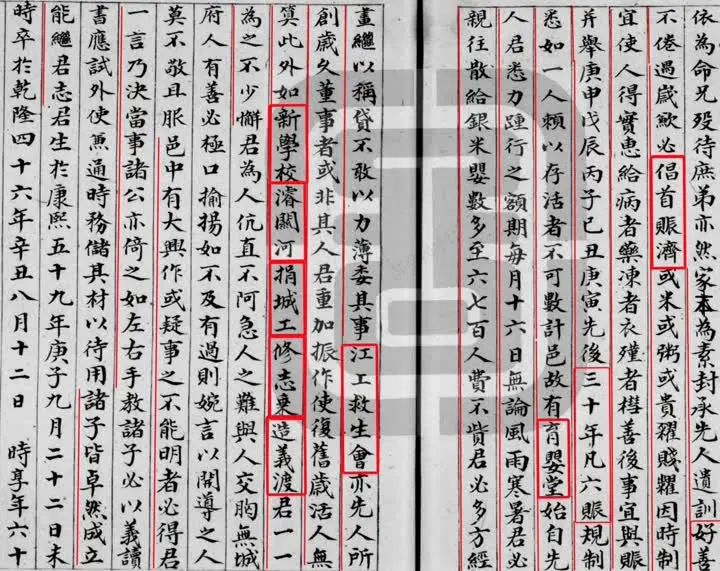 依為命兄歿待庶弟亦然家本為素封承先人遺訓好善
不倦遇歲歉必倡首賑濟或米或粥或貴糴賤糶因時制
宜使人得實惠給病者藥凍者衣殣者槥善後事宜與賑
并舉庚申戊辰丙子己丑庚寅先後三十年凡六賑規制
悉如一人賴以存活者不可數計邑故有育嬰堂始自先
人君悉力踵行之額期每月十六日無論風雨寒暑君必
親往散給銀米嬰數多至六七百人費不貲君必多方經
畫繼以稱貸不敢以力薄委其事江工救生會亦先人所
創歲久董事者或非其人君重加振作使復舊歲活人無
算此外如新學校濬關河捐城工修志乘造義渡君一一
為之不少懈君為人伉直不阿急人之難與人交胸無城
府人有善必極口揄揚如不及有過則婉言以開導之人
莫不敬且服邑中有大興作或疑事之不能明者必得君
一言乃決當事諸公亦倚之如左右手教諸子必以義讀
書應試外使兼通時務儲其材以待用諸子皆卓然成立
能繼君志君生於康熙五十九年庚子九月二十二日未
時卒於乾隆四十六年辛丑八月十二日 時享年六十